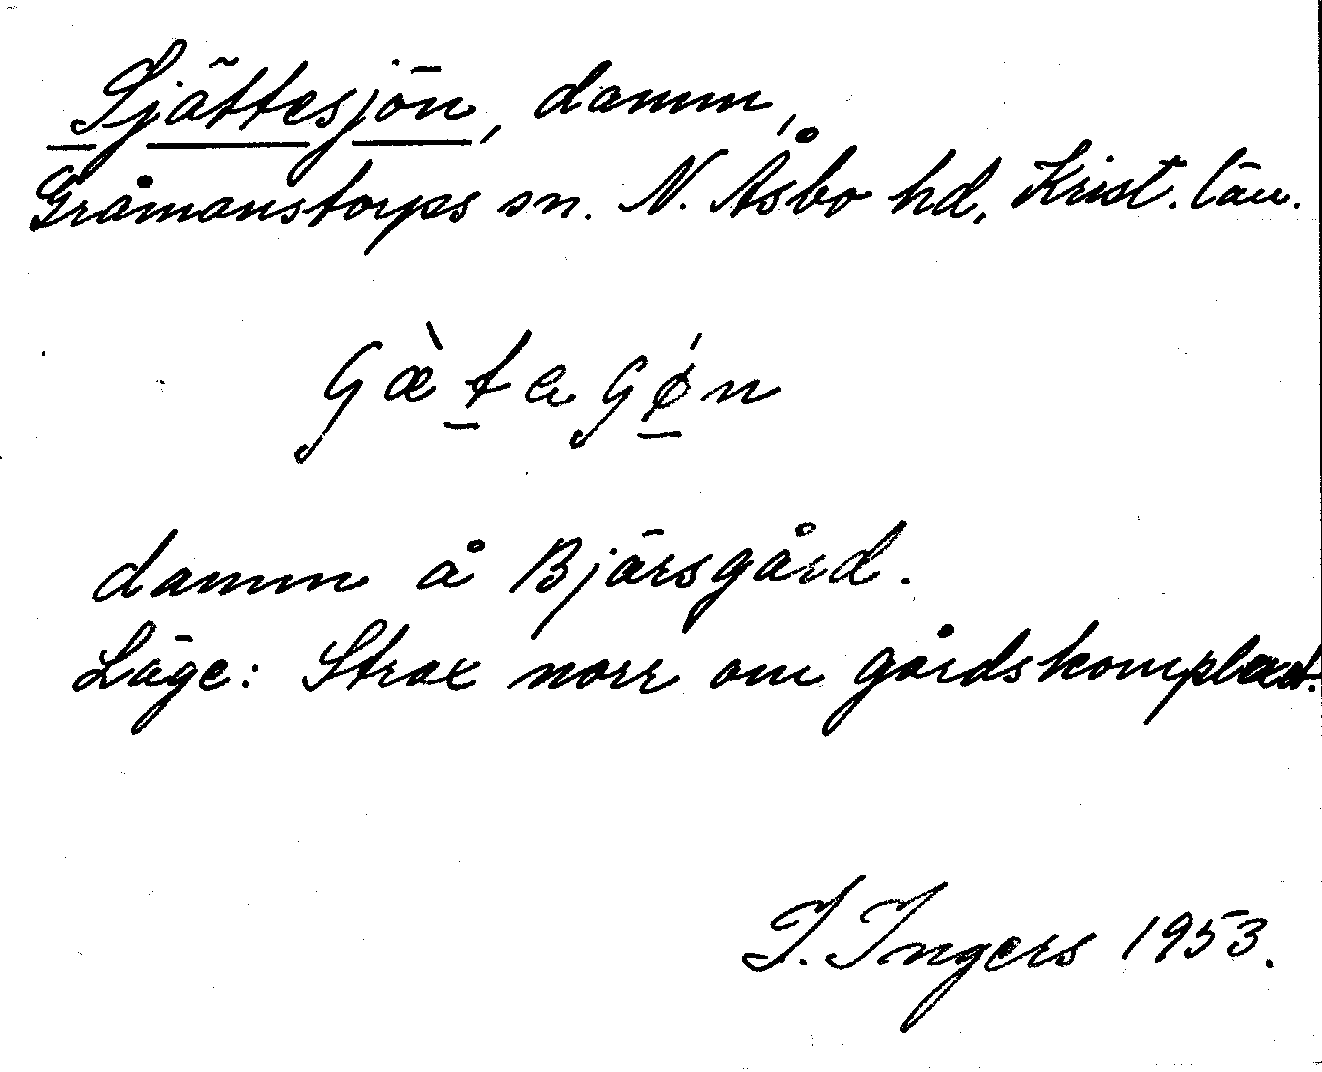 Sjättesjön, damm,
Gråmanstorps sn. N. Åsbo hd, Krist. län.
damm å Bjärsgård.
Läge: Strax norr om gårdskomplexet.
I. Ingers 1953.